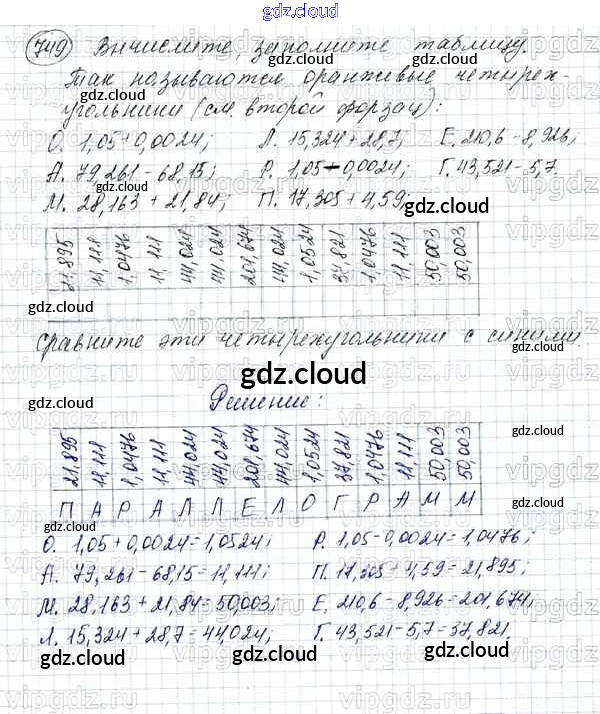 gdz.cloud
749 Вычислите, заполните таблицу.
Так называются оранжевые четырех-
угольники (см. второй форзац):
О. 1,05+0,0024; Л. 15,324+28,7; Е. 210,6-8,926;
А. 79,261-68,15; Р. 1,05-0,0024; Г. 43,521-5,7.
М. 28,163+21,84; П. 17,305+4,59;
21,895 11,111 1,0476 11,111 44,024 44,024 201,674 44,024 1,0524 37,821 1,0476 11,111 50,003 50,003
Сравните эти четырехугольники с синими
gdz.cloud
Решение:
21,895 11,111 1,0476 11,111 44,024 44,024 201,674 44,024 1,0524 37,821 1,0476 11,111 50,003 50,003
П А Р А Л Л Е Л О Г Р А М М
О. 1,05+0,0024=1,0524; Р. 1,05-0,0024=1,0476;
А. 79,261-68,15=11,111; П. 17,305+4,59=21,895;
М. 28,163+21,84=50,003; Е. 210,6-8,926=201,674;
Л. 15,324+28,7=44,024; Г. 43,521-5,7=37,821.
gdz.cloud